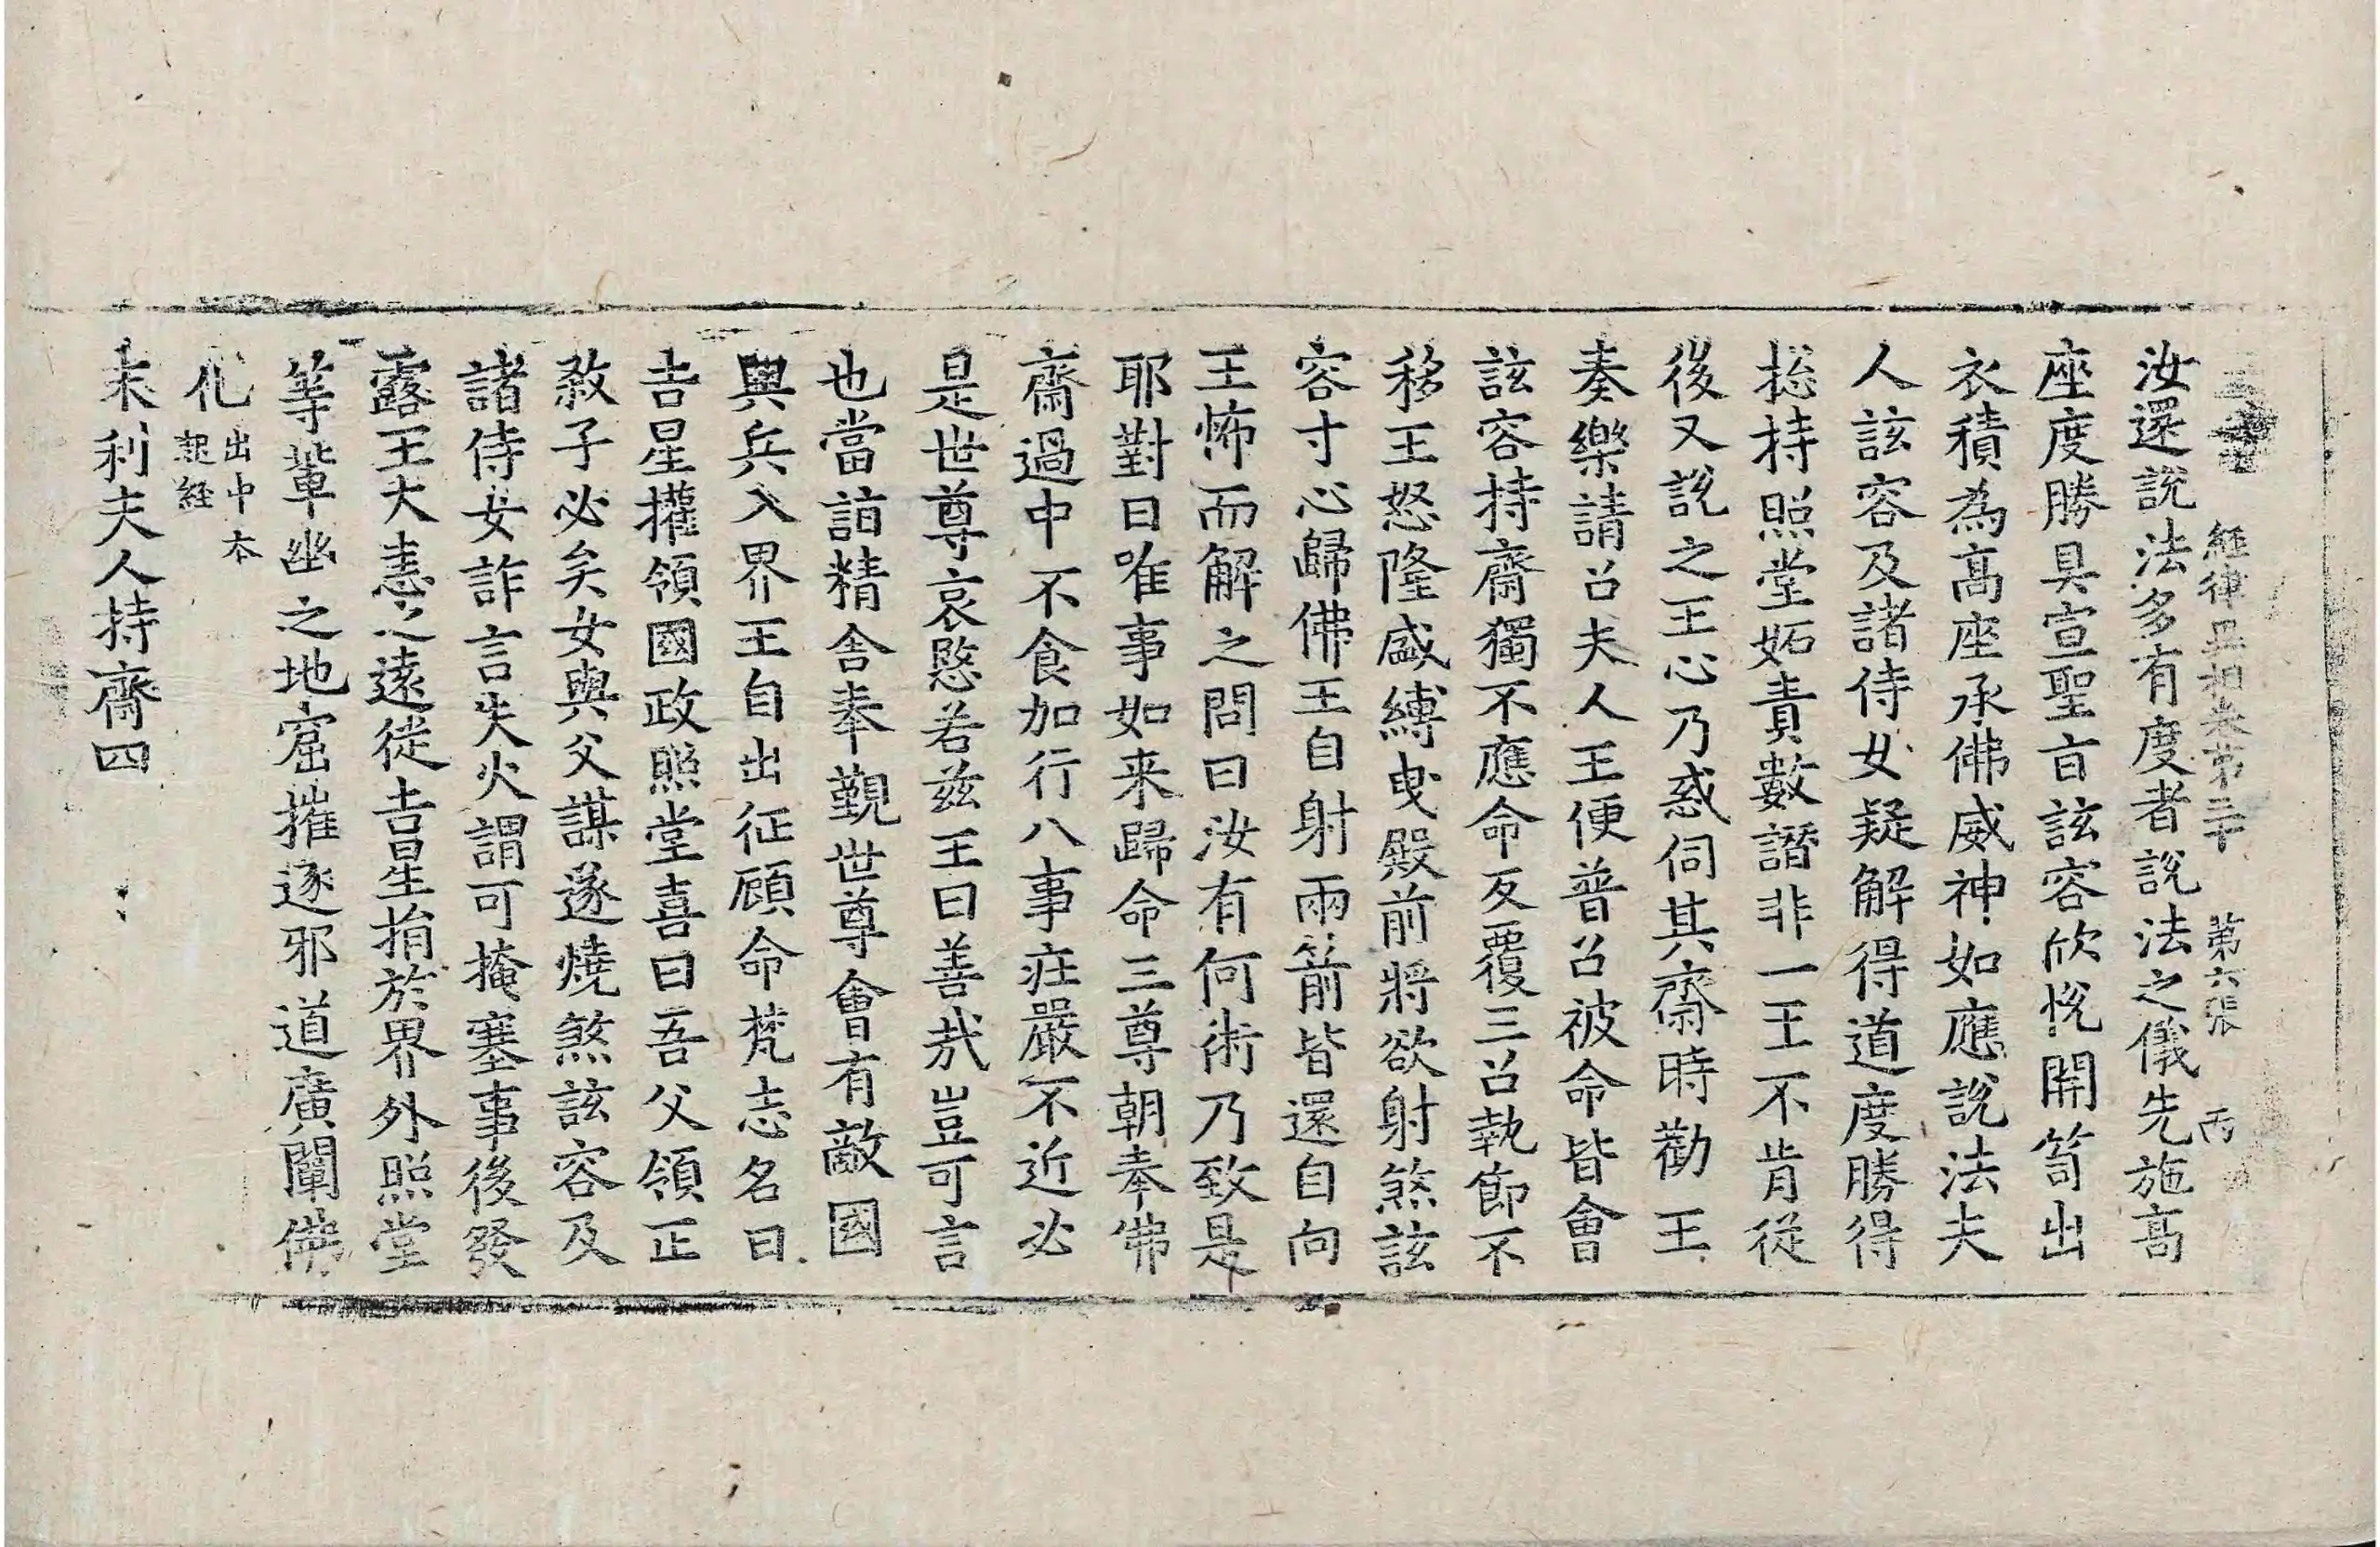 經律異相卷第二十 第六張 丙
汝還說法多有度者說法之儀先施高
座度勝具宣聖旨該容欣恱開笥出
衣積為高座承佛威神如應說法夫
人該容及諸侍女疑解得道度勝得
捴持照堂妬責數譖非一王不肯從
後又說之王心乃惑伺其齋時勸王
奏樂請召夫人王便普召被命皆會
該容持齋獨不應命反覆三召執節不
移王怒隆盛縛曳殿前將欲射煞該
容寸心歸佛王自射兩箭皆還自向
王怖而解之問曰汝有何術乃致是
耶對曰唯事如来歸命三尊朝奉佛
齋過中不食加行八事莊嚴不近必
是世尊哀愍若茲王曰善哉豈可言
也當詣精舍奉覲世尊會有敵國
興兵入界王自出征顧命梵志名曰
吉星攉領國政照堂喜曰吾父領正
敘子必矣女與父謀遂燒煞該容及
諸侍女詐言失火謂可掩塞事後發
露王大恚之遠徙吉星捐於界外照堂
等輩幽之地窟摧逐邪道廣闡佛
化 出中本
起經
末利夫人持齋四